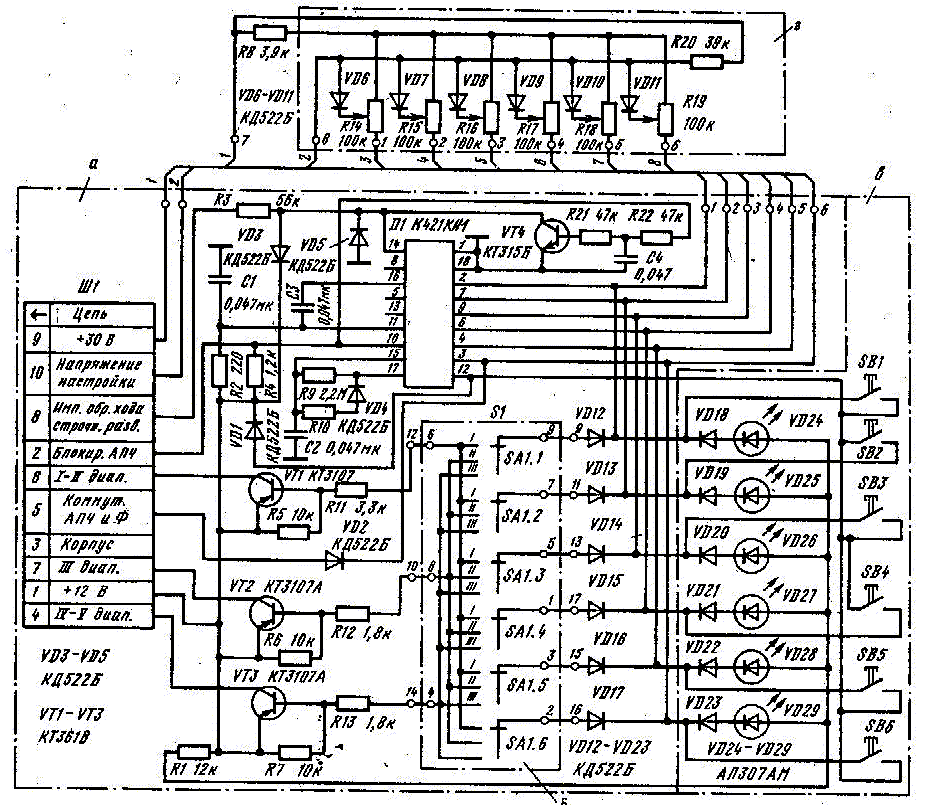 R8 3,9к
R20 39к
г
VD6
VD7
VD8
VD9
VD10
VD11
VD6-VD11
КД522Б
R14
100к
R15
100к
R16
100к
R17
100к
R18
100к
R19
100к
7
8
1
2
3
4
5
6
1
2
3
4
5
6
7
8
а
в
1
2
R3 56к
Д1 К421КН1
R21 47к
R22 47к
1
2
3
4
5
6
VD3
КД522Б
VD5
КД522Б
VT4
КТ315Б
C4
0,047
C1
0,047мк
C3
0,047мк
14
8
16
5
13
11
10
15
17
1
18
2
7
9
6
4
3
12
Ш1
Цепь
9 +30 В
10 Напряжение
настройки
8 Имп. обр. хода
строчн. разв.
2 Блокир. АПЧ
6 I-II диап.
5 Коммут.
АПЧ и Ф
3 Корпус
7 III диап.
1 +12 В
4 IV-V диап.
R2 220
R4 1,2к
R9 2,2М
R10
VD4
КД522Б
VD1
КД522Б
C2 0,047мк
VT1 КТ3107
R5 10к
R11 3,3к
VD2
КД522Б
VT2 КТ3107А
R6 10к
R12 1,8к
VT3 КТ3107А
R13 1,8к
R1 12к
R7 10к
VD3-VD5
КД522Б
VT1-VT3
КТ361В
S1
12 6
10 8
14 4
I
II
III
SA1.1
9 9
VD12
I
II
III
SA1.2
7 11
VD13
I
II
III
SA1.3
5 13
VD14
I
II
III
SA1.4
1 17
VD15
I
II
III
SA1.5
3 15
VD16
SA1.6
2 16
VD17
VD12-VD23
КД522Б
Б
VD18
VD24
VD19
VD25
VD20
VD26
VD21
VD27
VD22
VD28
VD23
VD29
VD24-VD29
АЛ307АМ
SB1
SB2
SB3
SB4
SB5
SB6